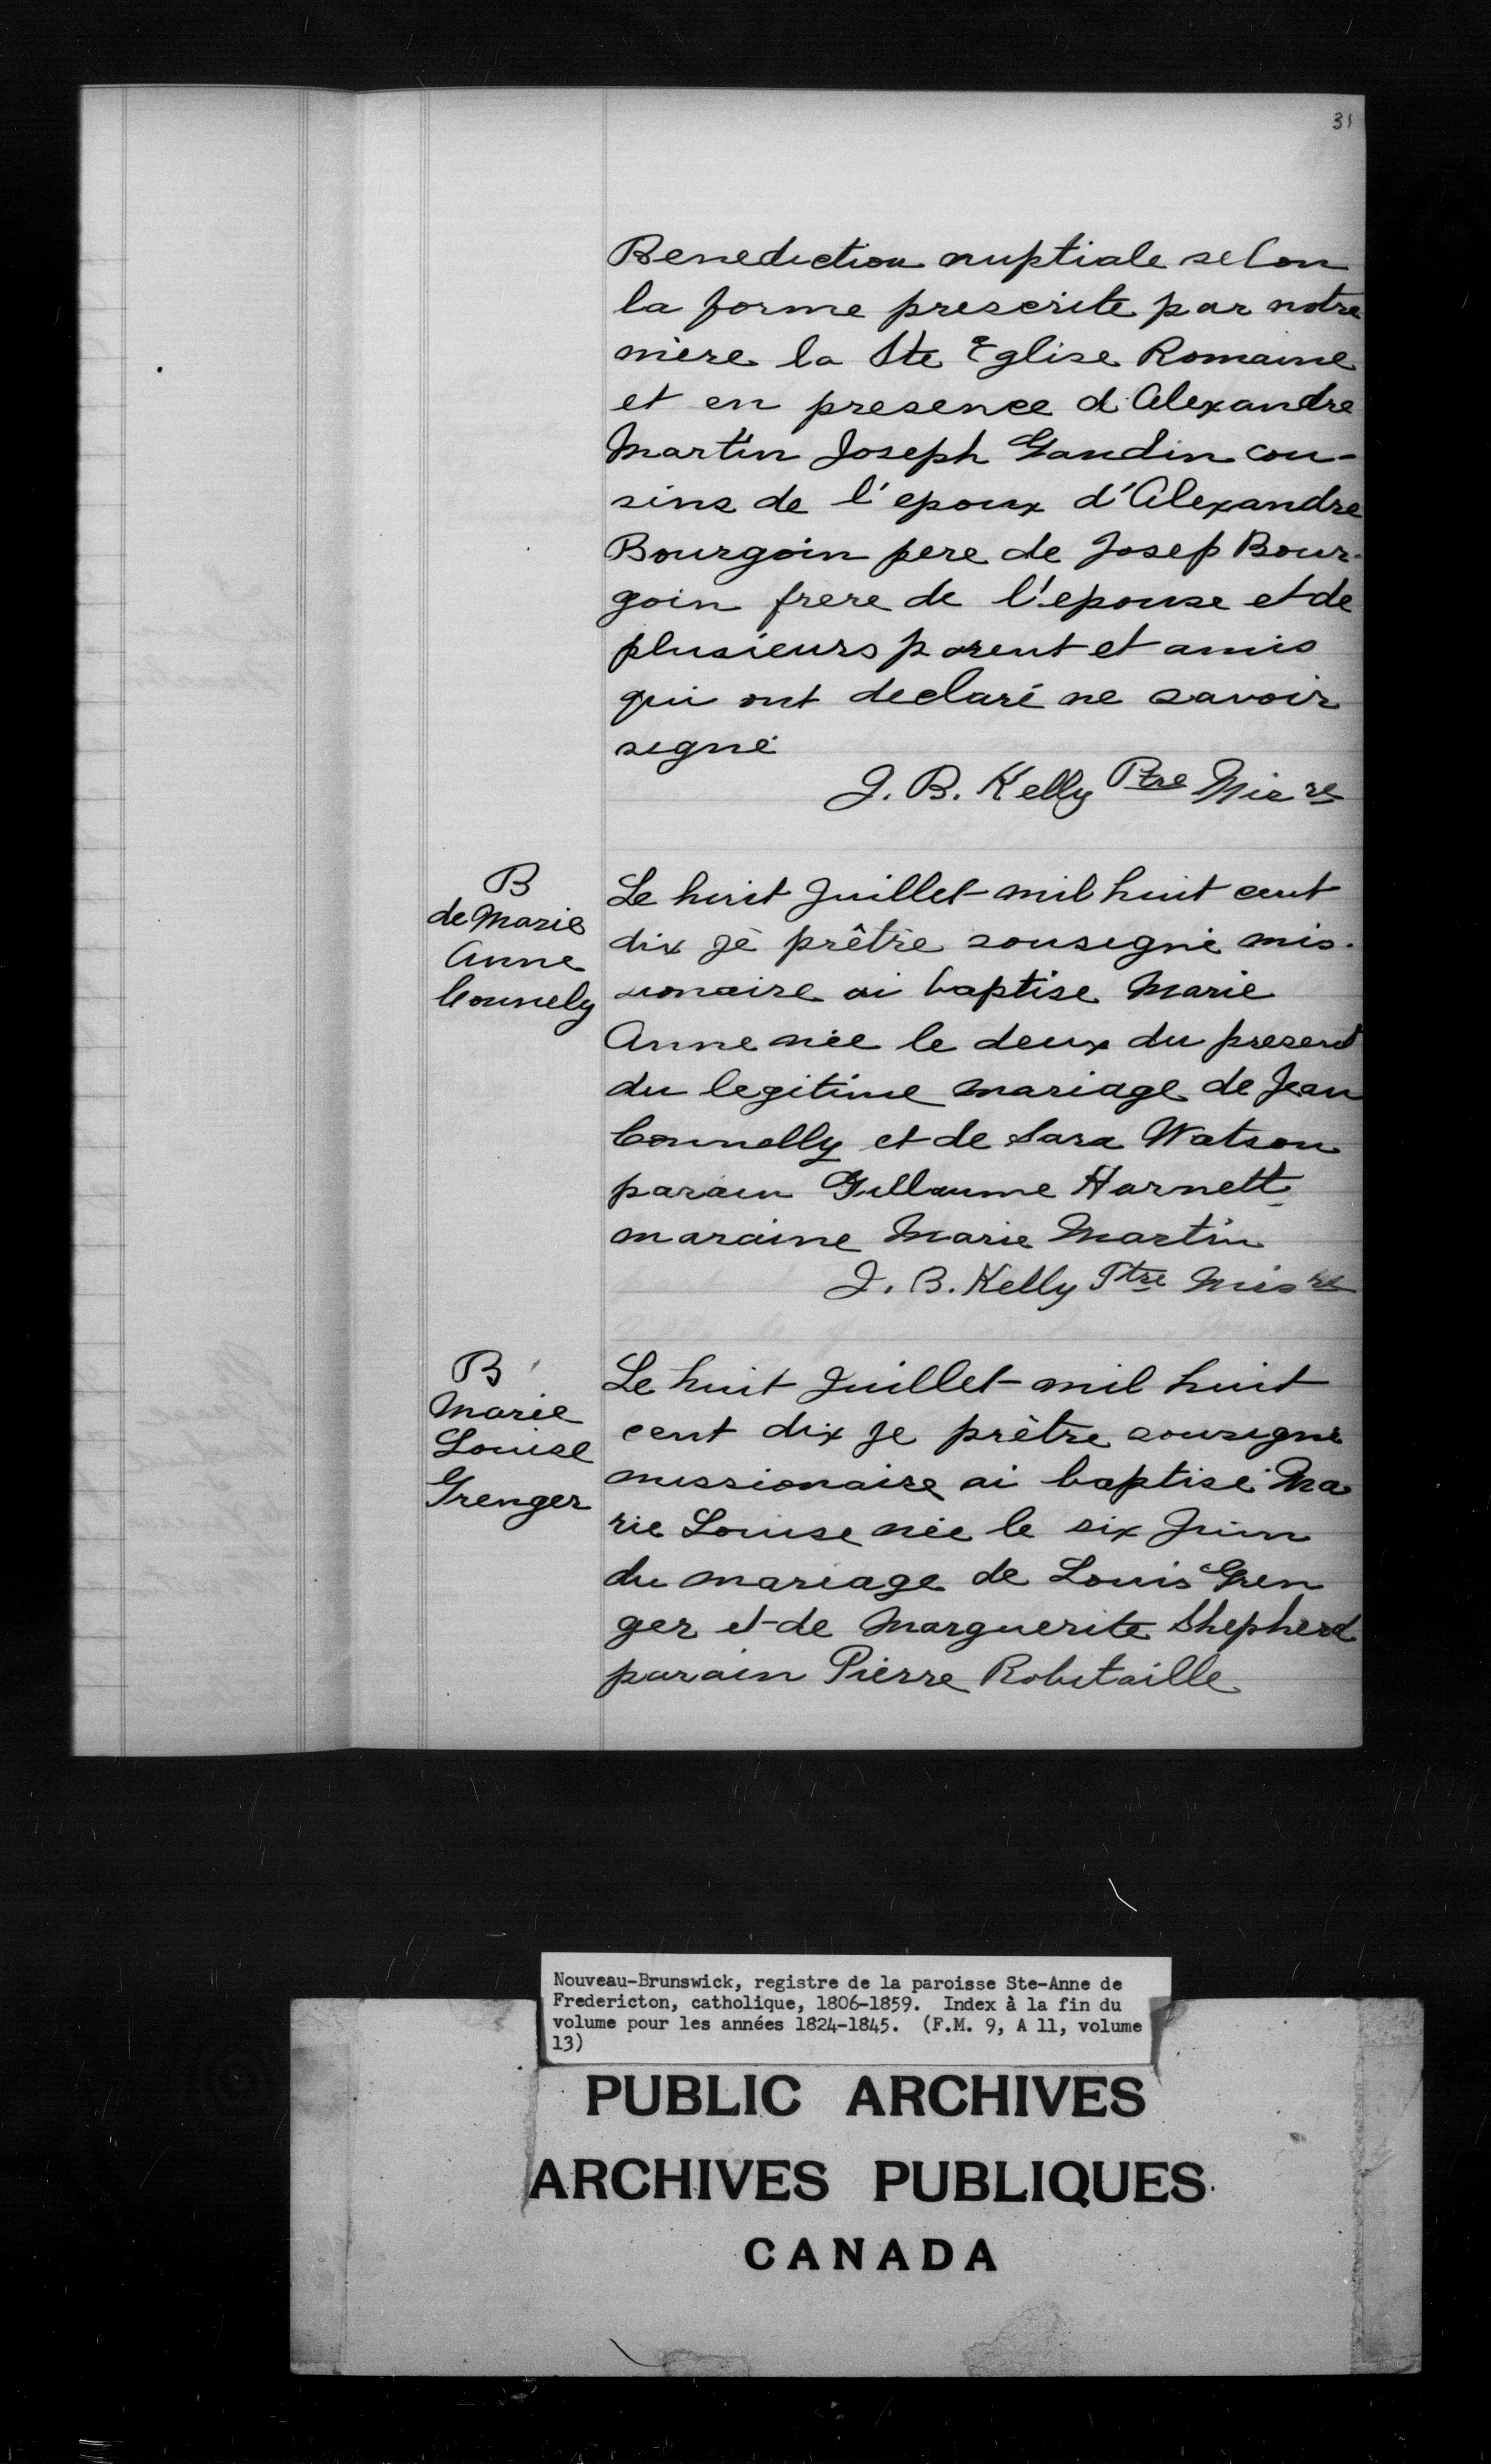 31
Benediction nuptiale selon
la forme prescrite par notre
mère la Ste Eglise Romaine
et en presence d'Alexandre
Martin Joseph Gaudin cou-
sins de l'epoux d'Alexandre
Bourgoin pere de Josep Bour-
goin frere de l'epouse et de
plusieurs parent et amis
qui ont declaré ne savoir
signé
J. B. Kelly Ptre Misre
B
de Marie
Anne
Connely
Le huit Juillet mil huit cent
dix je prêtre sousigné mis-
sionaire ai baptise Marie
Anne née le deux du present
du legitime mariage de Jean
Connelly et de Sara Watson
parain Guillaume Harnett
maraine Marie Martin
J. B. Kelly Ptre Misre
B
Marie
Louise
Grenger
Le huit Juillet mil huit
cent dix je prêtre sousigné
missionaire ai baptisé Ma
rie Louise née le six Juin
du mariage de Louis Gren
ger et de Marguerite Shepherd
parain Pierre Robitaille
Nouveau-Brunswick, registre de la paroisse Ste-Anne de
Fredericton, catholique, 1806-1859. Index à la fin du
volume pour les années 1824-1845. (F.M. 9, A 11, volume
13)
PUBLIC ARCHIVES
ARCHIVES PUBLIQUES
CANADA